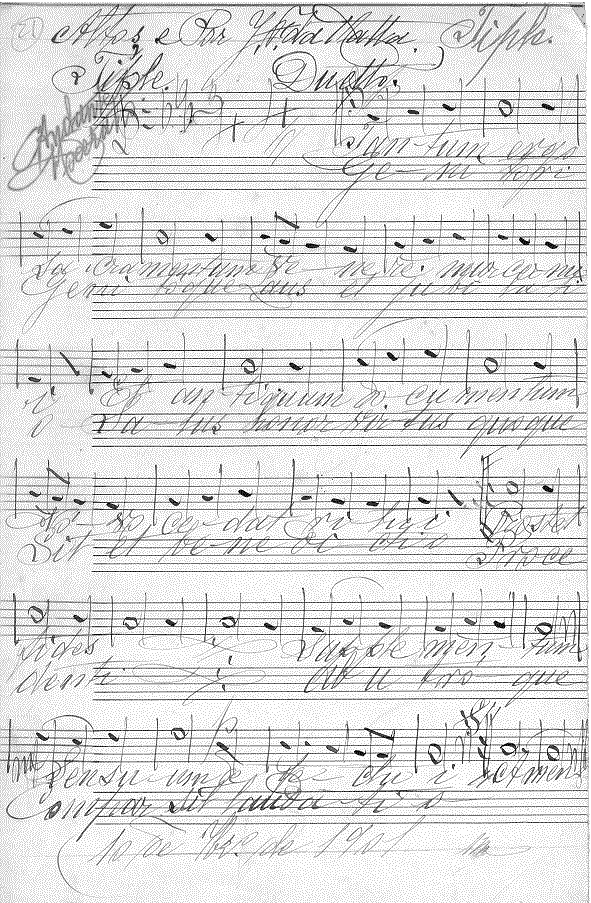 Altos e Por J. da Matta. Tiple.
Tiple. 2º Duetto.
Andante
Tan-tum ergo
Ge-ni tori
Sa cramentum ve ne re mur cer nu
Geni toque laus et jubi la ti
i. Et an tiquum do cu mentum
o Sa lus honor vir tus quoque
No-vo ce-dat ri tu i. Prestet
Sit et be-ne di ctio Proce
fides Supple men-tum
denti ab u tro que
Sensu um de fe ctu i
Compar sit lauda ti o
10 de de 1901